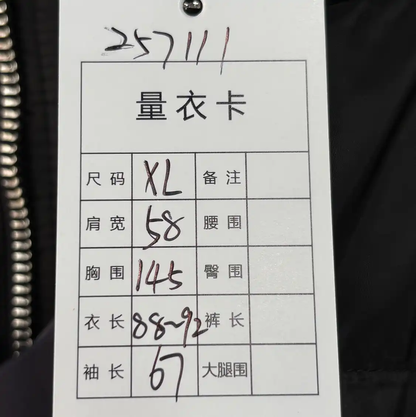 257111
量衣卡
尺码 XL 备注
肩宽 58 腰围
胸围 145 臀围
衣长 88~92 裤长
袖长 67 大腿围